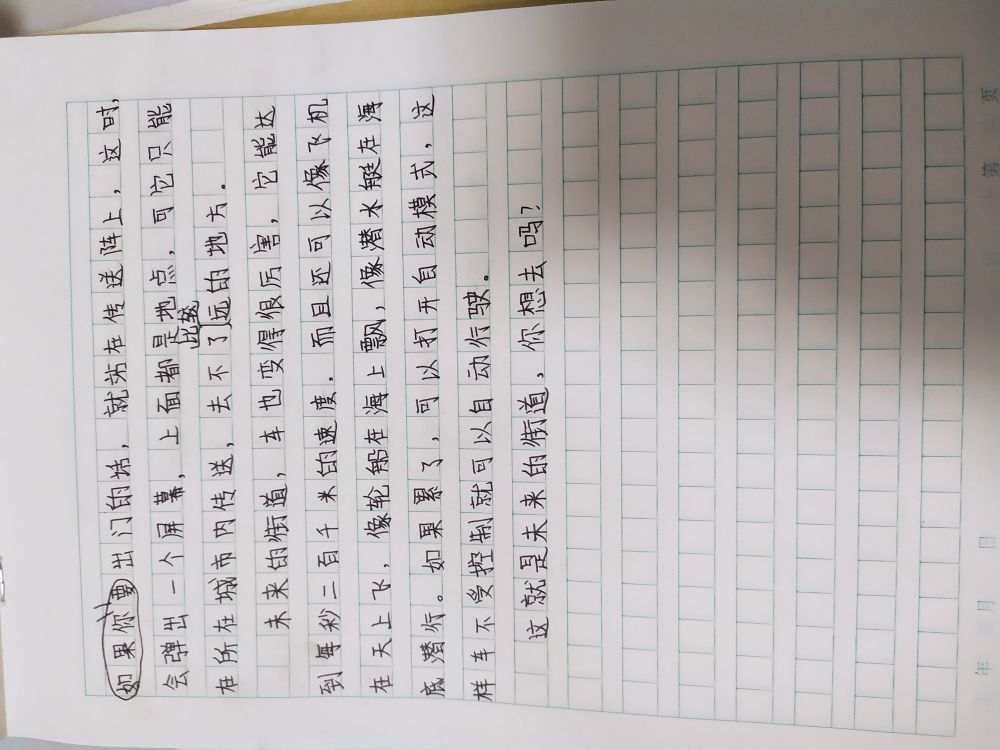 如果你要出门的话，就站在传送阵上，这时，
会弹出一个屏幕，上面都是地点，可它只能
在所在城市内传送，去不了比较远的地方。
未来的街道，车也变得很厉害，它能达
到每秒二百千米的速度，而且还可以像飞机
在天上飞，像轮船在海上飘，像潜水艇在海
底潜行。如果累了，可以打开自动模式，这
样车不受控制就可以自动行驶。
这就是未来的街道，你想去吗？
年 月 日 第 页